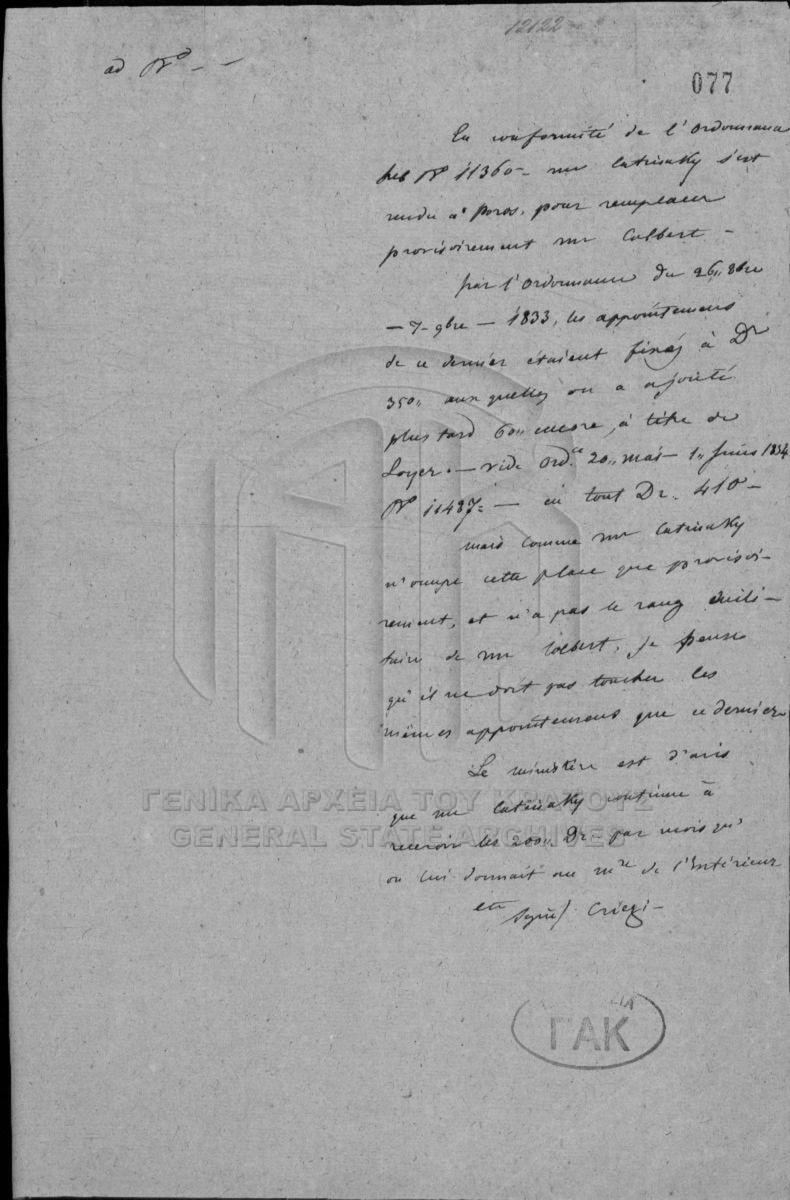 12122
ad No - -
077
En conformité de l'Ordonnance
No 11360 - mr Catinaky s'est
rendu à Poros, pour remplacer
provisoirement mr Colbert -
par l'Ordonnance du 26,, 8bre
- 7 - 9bre - 1833, les appointemens
de ce dernier étaient fixés à Dr
350,, aux quelles on a ajouté
plus tard 60,, encore, à titre de
Loyer. - vide Ordce 20,, mai - 1,, Juin 1834
No 11487 - en tout Dr. 410 -
mais comme mr Catinaky
n'occupe cette place que provisoi-
rement, et n'a pas le rang mili-
taire de mr Colbert, je pense
qu'il ne doit pas toucher les
mêmes appointemens que ce dernier
Le ministère est d'avis
que mr Catinaky continue à
recevoir les 200,, Dr par mois qu'
on lui donnait au mre de l'Intérieur
etc
signé) Criezi -
ΓΕΝΙΚΑ ΑΡΧΕΙΑ ΤΟΥ ΚΡΑΤΟΥΣ
GENERAL STATE ARCHIVES
ΓΑΚ